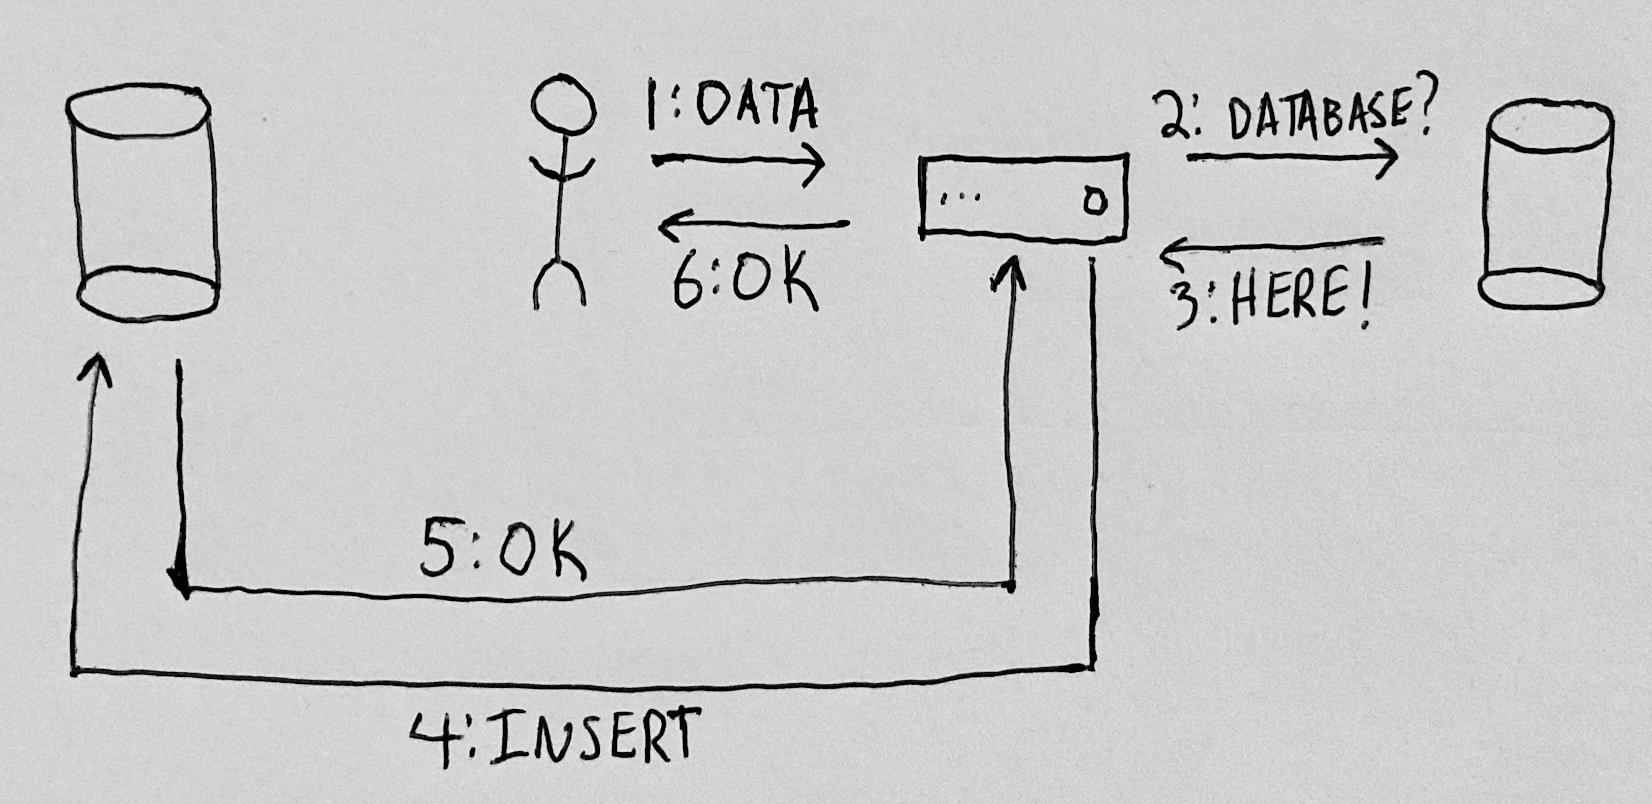 1: DATA
2: DATABASE?
6: OK
3: HERE!
5: OK
4: INSERT